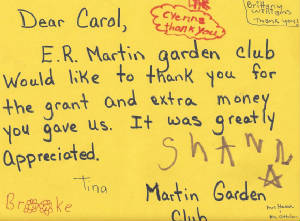 Dear Carol,
Cyenna
thank you
Brittany
Williams
Thank you!
E.R. Martin garden club
Would like to thank you for
the grant and extra money
you gave us. It was greatly
Appreciated.
SHANNA
Tina
Brooke
Martin Garden
Club